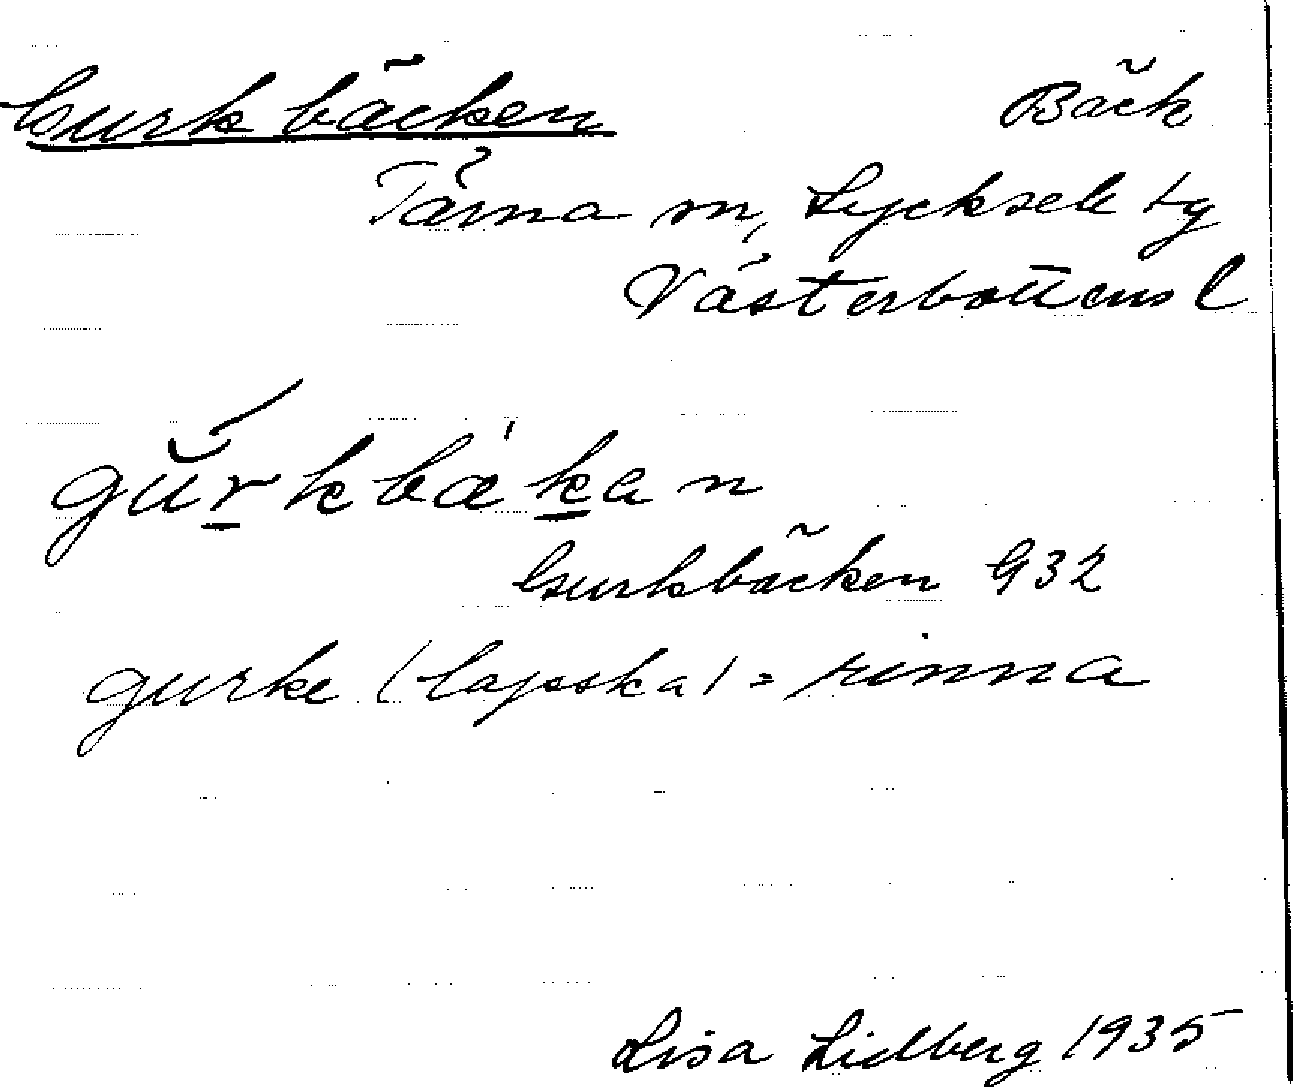 Gurkbäcken Bäck
Tärna sn, Lycksele tg
Västerbottens l
gŭrkbäkan
Gurkbäcken G32
gurke (lapska) = rinna
Lisa Lidberg 1935